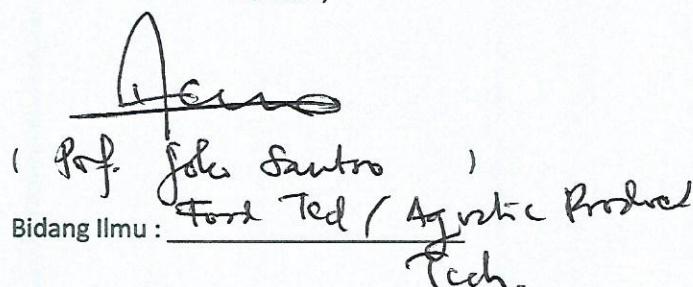 ( Prof. Joko Santoso )
Bidang Ilmu : Food Tech / Aquatic Product
Tech.